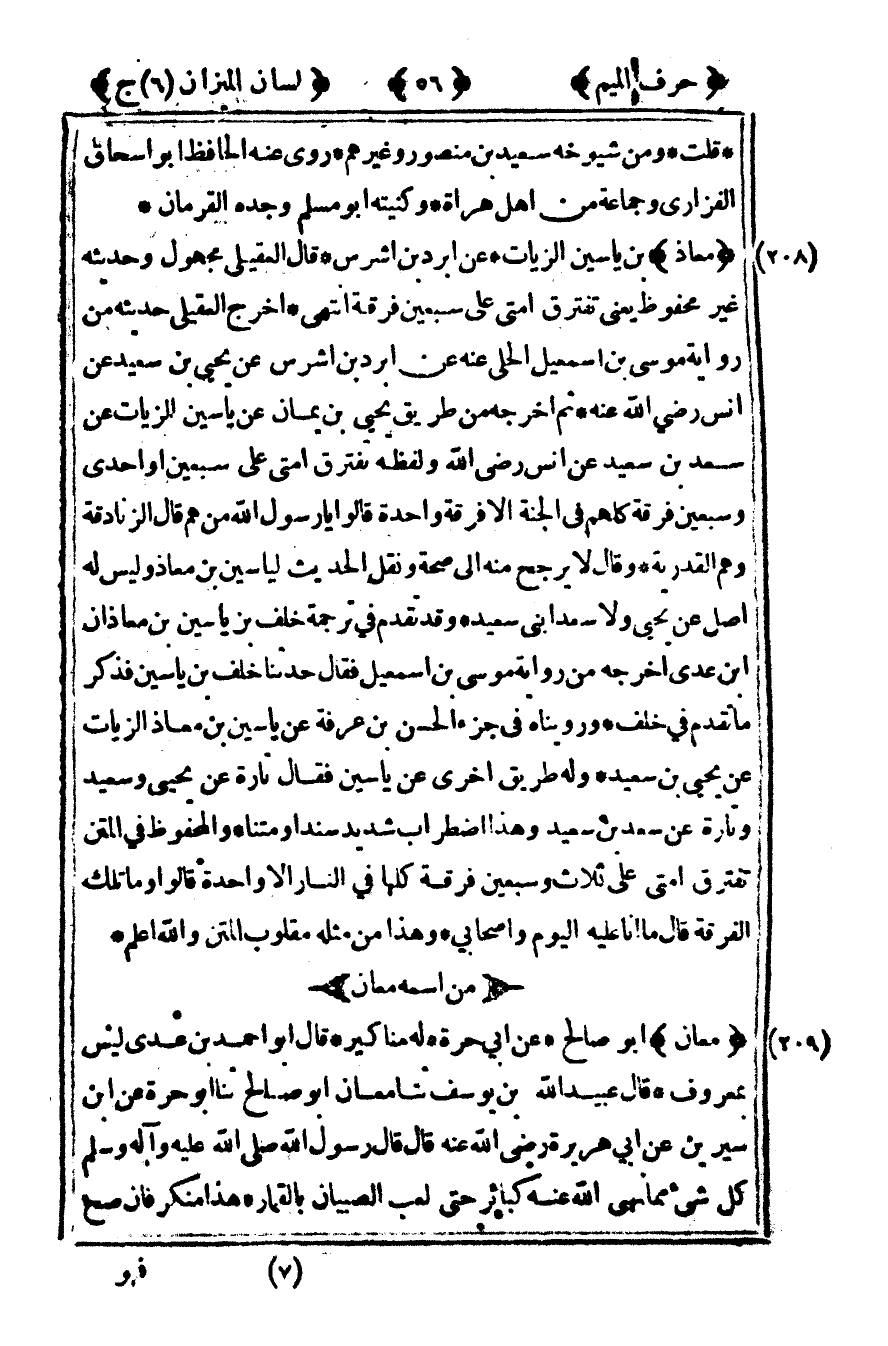 ﴿ حرف الميم ﴾ ﴿ ٥٦ ﴾ ﴿ لسان الميزان (٦) ج ﴾
* قلت * ومن شيوخه سعيد بن منصور وغيرهم * روى عنه الحافظ ابو اسحاق
الفزارى وجماعة من اهل هراة * وكنيته ابو مسلم وجده القرمان *
(٢٠٨) ﴿ معاذ ﴾ بن ياسين الزيات * عن ابرد بن اشرس * قال العقيلى مجهول وحديثه
غير محفوظ يعنى تفترق امتى على سبعين فرقة انتهى * اخرج العقيلى حديثه من
رواية موسى بن اسمعيل الحلى عنه عن ابرد بن اشرس عن يحيى بن سعيد عن
انس رضي الله عنه * ثم اخرجه من طريق يحيى بن يمان عن ياسين الزيات عن
سعد بن سعيد عن انس رضى الله ولفظه تفترق امتى على سبعين او احدى
وسبعين فرقة كلهم فى الجنة الا فرقة واحدة قالوا يارسول الله من هم قال الزنادقة
وهم القدرية * وقال لا يرجع منه الى صحة ونقل الحديث لياسين بن معاذ وليس له
اصل عن يحيى ولا سعد ابنى سعيد * وقد تقدم في ترجمة خلف بن ياسين بن معاذ ان
ابن عدى اخرجه من رواية موسى بن اسمعيل فقال حدثنا خلف بن ياسين فذكر
ما تقدم في خلف * ورويناه فى جزء الحسن بن عرفة عن ياسين بن معاذ الزيات
عن يحيى بن سعيد * وله طريق اخرى عن ياسين فقال تارة عن يحيى وسعيد
وتارة عن سعد بن سعيد وهذا اضطراب شديد سندا ومتنا * والمحفوظ في المتن
تفترق امتى على ثلاث وسبعين فرقة كلها في النار الا واحدة قالوا وما تلك
الفرقة قال ما انا عليه اليوم واصحابي * وهذا من مثله مقلوب المتن والله اعلم *
﴿ من اسمه معان ﴾
(٢٠٩) ﴿ معان ﴾ ابو صالح * عن ابي حرة * له مناكير * قال ابو احمد بن عدى ليس
بمعروف * قال عبيد الله بن يوسف ثنا معان ابو صالح ثنا ابو حرة عن ابن
سيرين عن ابي هريرة رضى الله عنه قال قال رسول الله صلى الله عليه وآله وسلم
كل شئ مما نهى الله عنه كبائر حتى لعب الصبيان بالقمار * هذا منكر فان صح
(٧) فهو